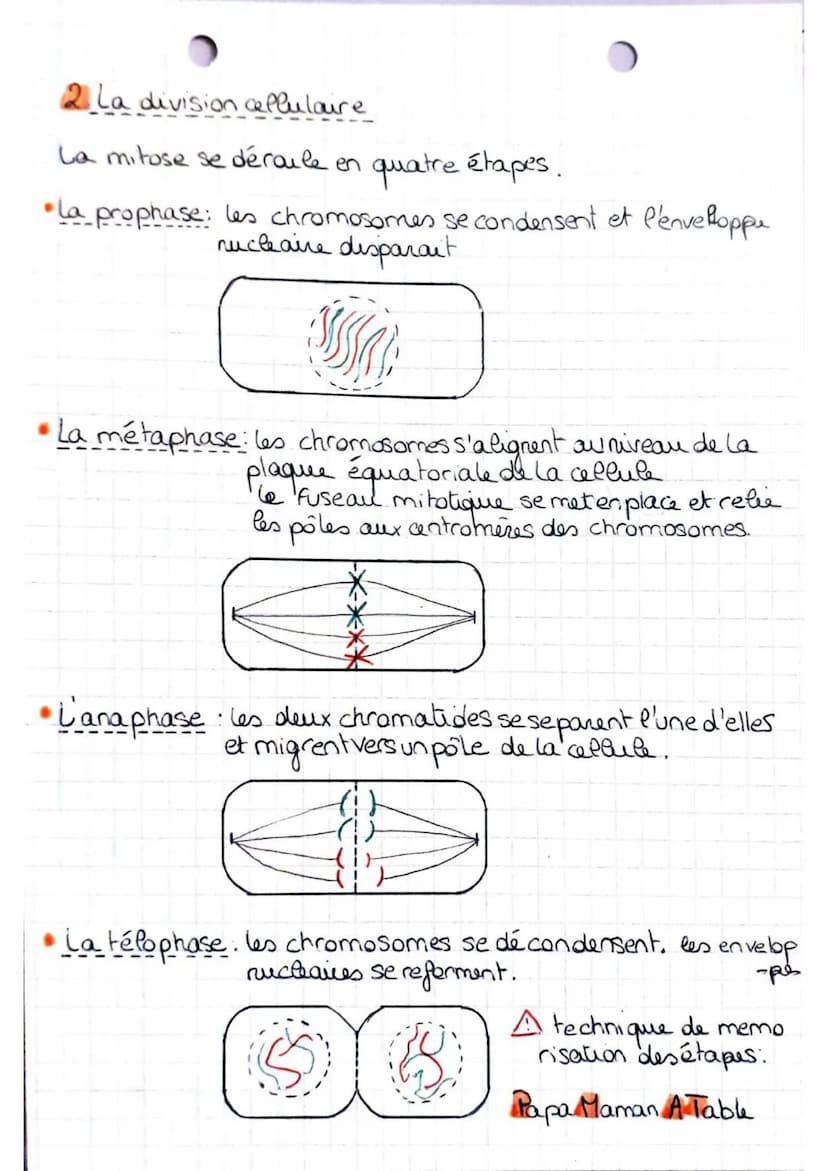 2 La division cellulaire
La mitose se déroule en quatre étapes.
• La prophase: les chromosomes se condensent et l'enveloppe
nucléaire disparait
• La métaphase: les chromosomes s'alignent au niveau de la
plaque équatoriale de la cellule
le fuseau mitotique se met en place et relie
les pôles aux centromères des chromosomes.
• L'anaphase : les deux chromatides se separent l'une d'elles
et migrent vers un pôle de la cellule.
• La télophase. les chromosomes se décondensent. les envelop
nucléaires se referment.
-pes
⚠ technique de memo
risation des étapes:
Papa Maman A Table